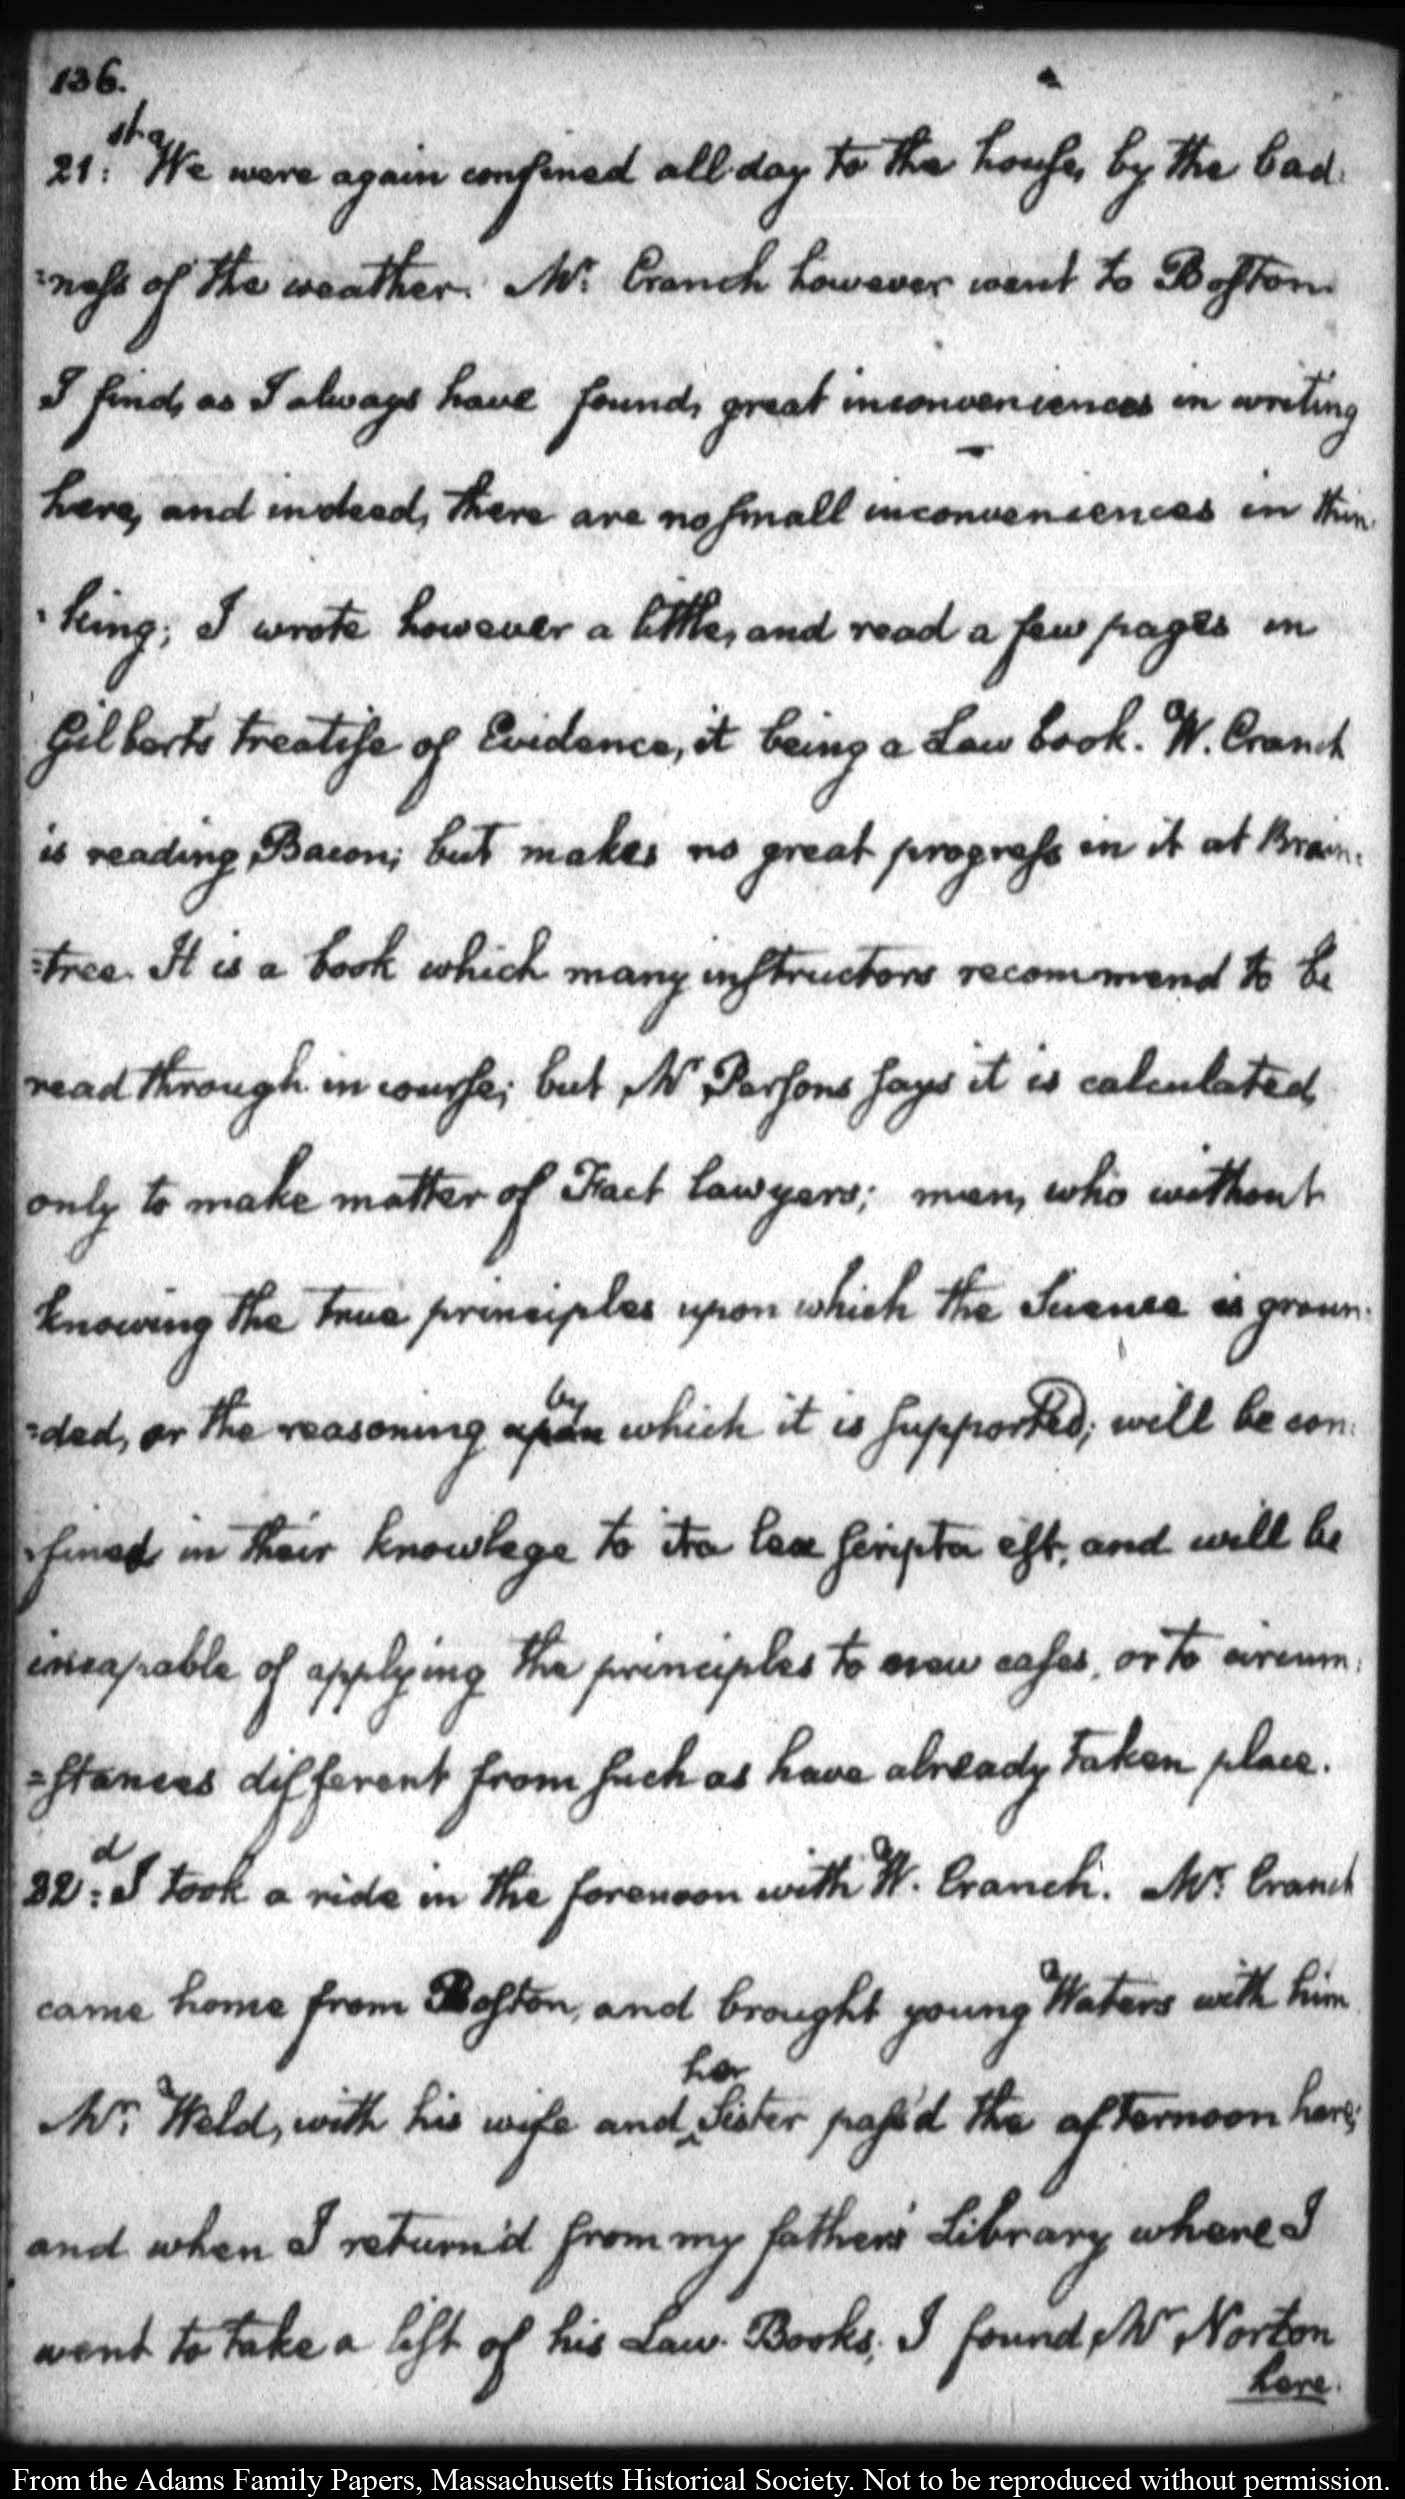 136.
21:st We were again confined all day to the house, by the bad:
=ness of the weather. Mr: Cranch however went to Boston.
I find, as I always have found, great inconveniences in writing
here, and indeed, there are no small inconveniences in thin:
:king; I wrote however a little, and read a few pages in
Gilberts treatise of Evidence, it being a Law book. W. Cranch
is reading Bacon; but makes no great progress in it at Brain:
=tree. It is a book which many instructors recommend to be
read through in course; but Mr Parsons says it is calculated,
only to make matter of Fact lawyers; men, who without
knowing the true principles upon which the Science is groun:
=ded, or the reasoning upon by which it is supported; will be con:
:fined in their knowlege to ita lex scripta est, and will be
incapable of applying the principles to new cases, or to circum:
=stances different from such as have already taken place.
22:d I took a ride in the forenoon with W. Cranch. Mr: Cranch
came home from Boston, and brought young Waters with him
Mr: Weld, with his wife and her Sister pass'd the afternoon here;
and when I return'd from my father's Library where I
went to take a list of his Law Books, I found Mr Norton
here.
From the Adams Family Papers, Massachusetts Historical Society. Not to be reproduced without permission.